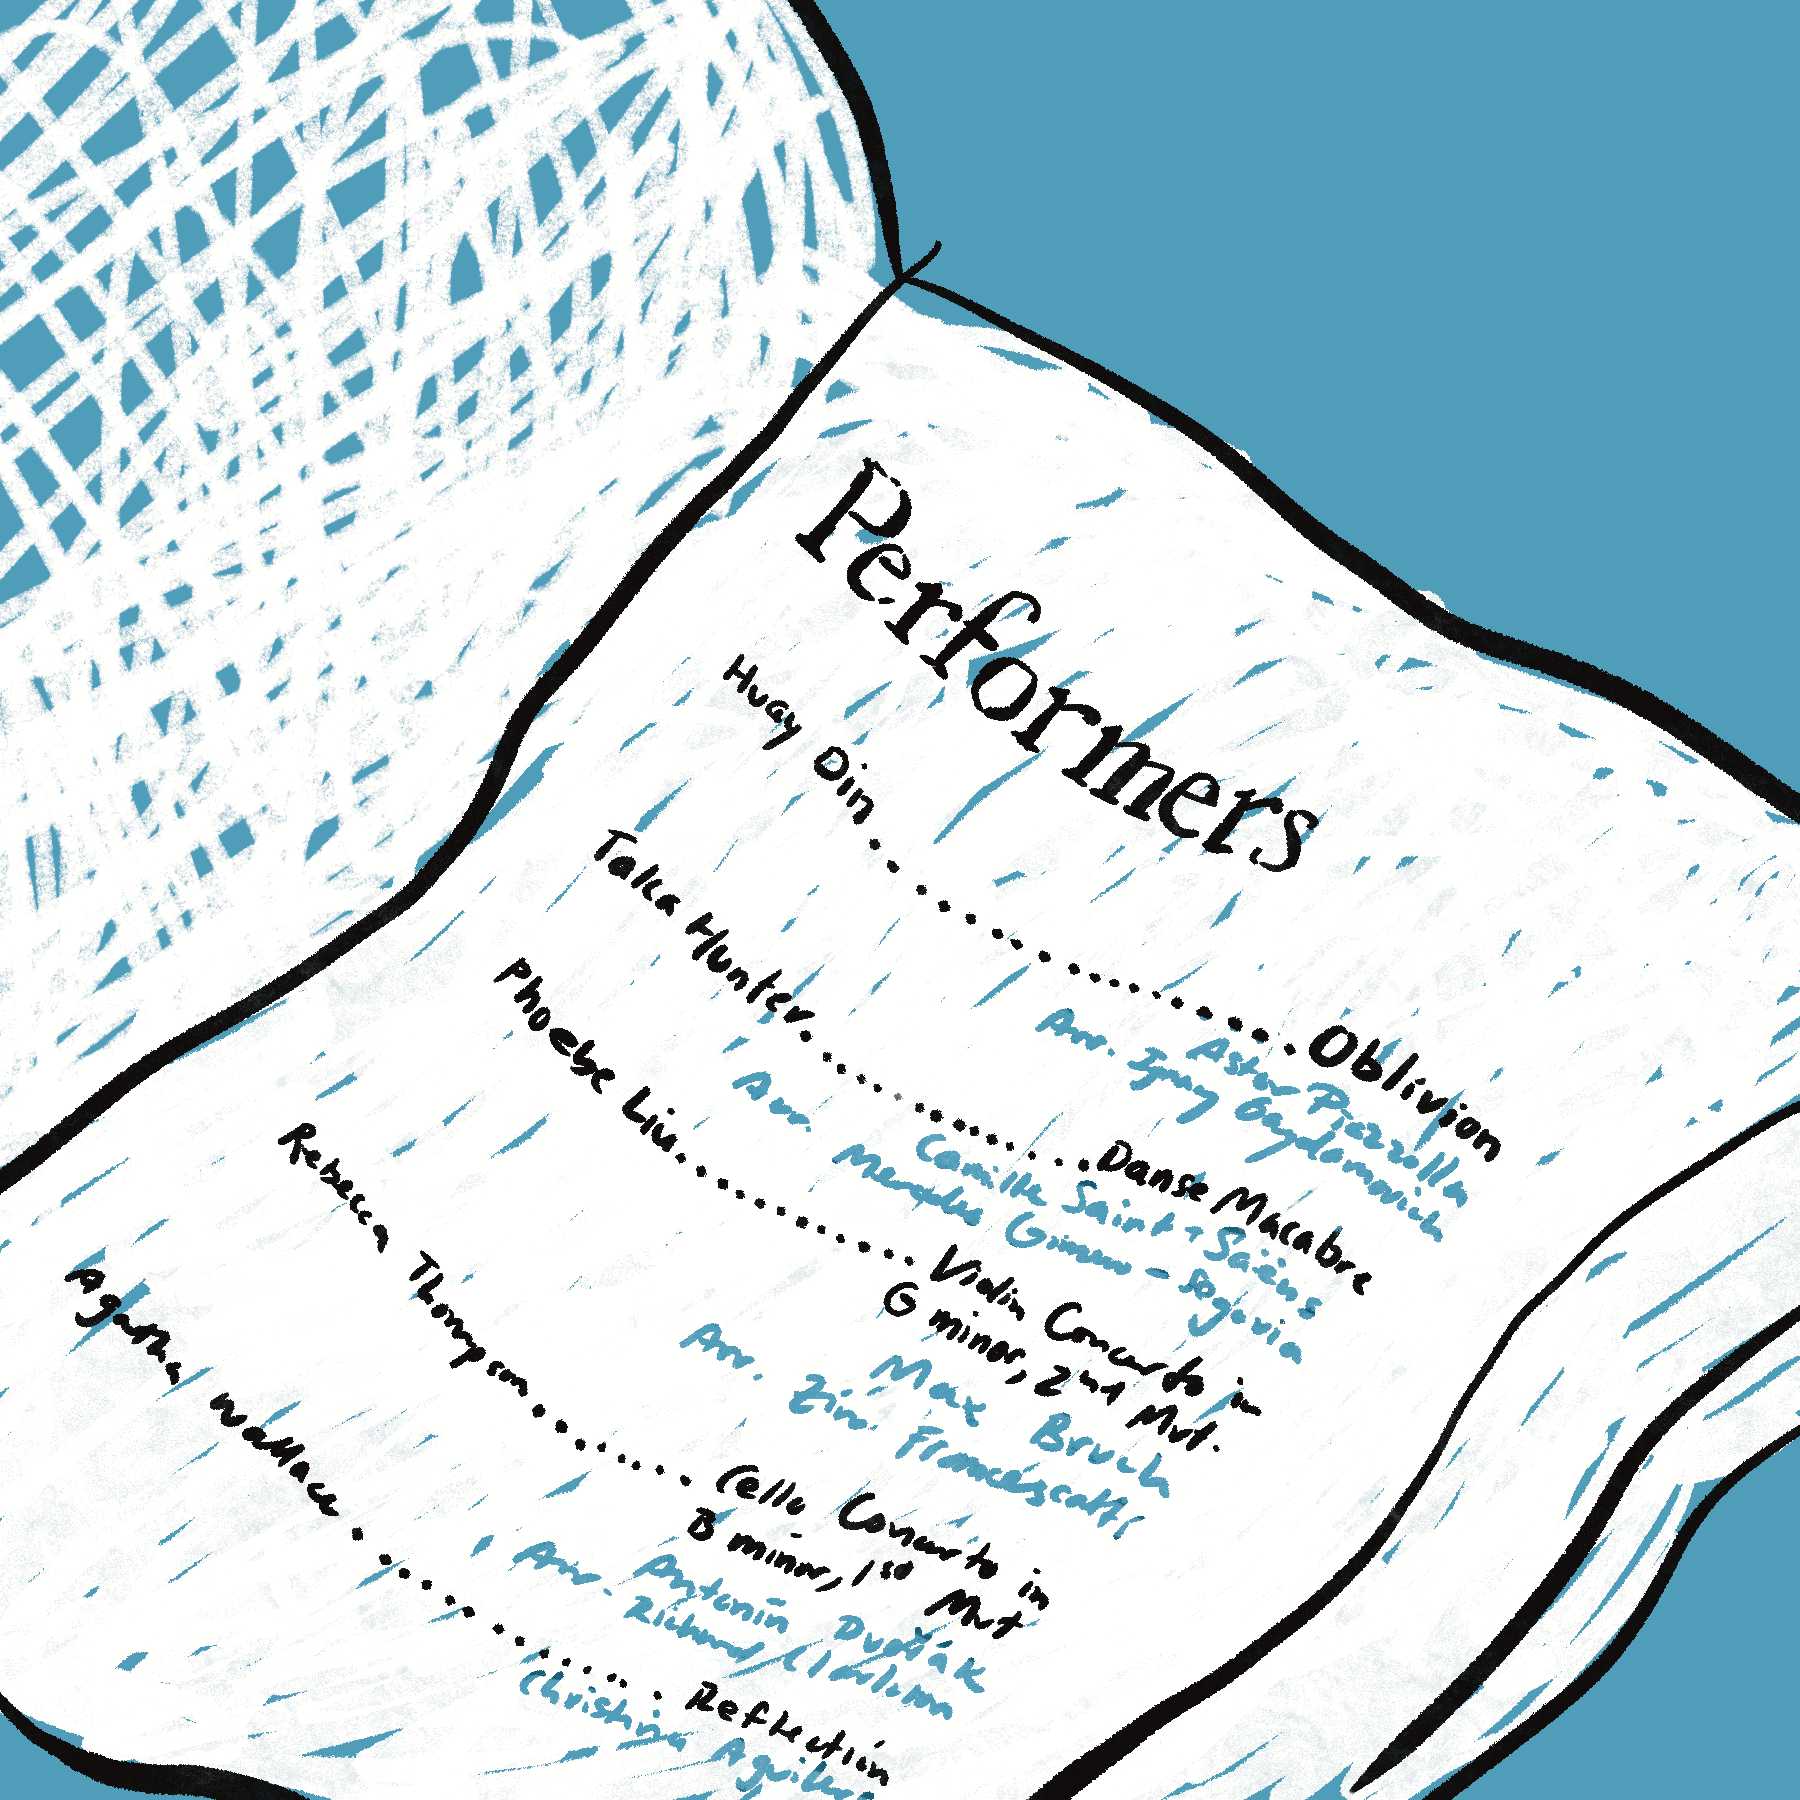 Performers
Huay Din....................Oblivion
Astor Piazzolla
Arr. Ignay Gaydamovich
Taka Hunter...................Danse Macabre
Camille Saint-Saëns
Arr. Gimeno-Segovia
Phoebe Liu..............Violin Concerto in
G minor, 2nd Mvt.
Max Bruch
Arr. Zino Francescatti
Rebecca Thompson.........Cello Concerto in
B minor, 1st Mvt
Antonín Dvořák
Arr. Richard
Agatha Wallace................Reflection
Christina Aguilera